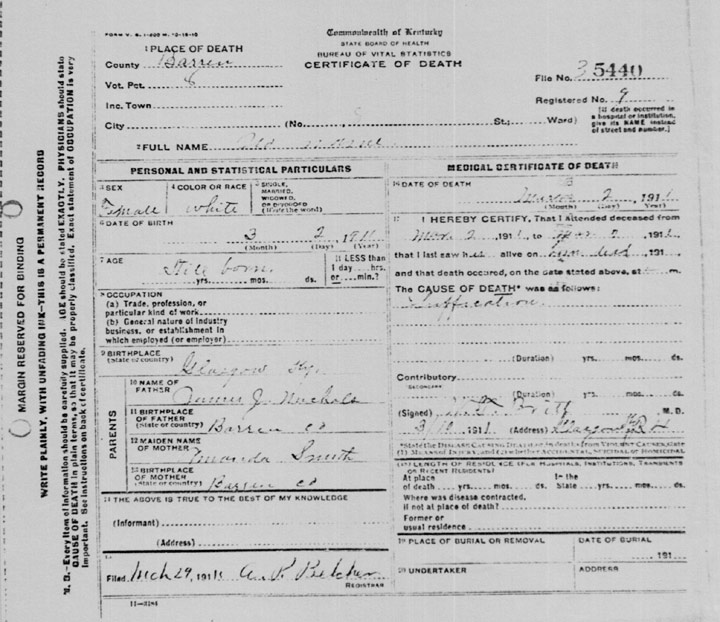 FORM V. S. 1-200 M. 12-15-10
Commonwealth of Kentucky
STATE BOARD OF HEALTH
BUREAU OF VITAL STATISTICS
CERTIFICATE OF DEATH
1 PLACE OF DEATH
County Barren
Vot. Pct. 8
Inc. Town
City (No. St.; Ward)
File No. 3 5440
Registered No. 9
(If death occurred in
a hospital or institution,
give its NAME instead
of street and number.)
2 FULL NAME
PERSONAL AND STATISTICAL PARTICULARS
3 SEX
Female
4 COLOR OR RACE
White
5 SINGLE,
MARRIED,
WIDOWED,
OR DIVORCED
(Write the word)
6 DATE OF BIRTH
3 2 1911
(Month) (Day) (Year)
7 AGE
Still born
yrs. mos. ds.
If LESS than
1 day hrs.
or min.?
8 OCCUPATION
(a) Trade, profession, or
particular kind of work
(b) General nature of industry
business, or establishment in
which employed (or employer)
9 BIRTHPLACE
(State or country) Glasgow Ky.
PARENTS
10 NAME OF
FATHER J. Nuchols
11 BIRTHPLACE
OF FATHER
(State or country) Barren co
12 MAIDEN NAME
OF MOTHER Amanda Smith
13 BIRTHPLACE
OF MOTHER
(State or country) Barren co
14 THE ABOVE IS TRUE TO THE BEST OF MY KNOWLEDGE
(Informant)
(Address)
15
Filed Mch 29, 1911 Belcher
REGISTRAR
11-3184
MEDICAL CERTIFICATE OF DEATH
16 DATE OF DEATH
March 2 1911
(Month) (Day) (Year)
17 I HEREBY CERTIFY, That I attended deceased from
Mar 2 1911, to 1911,
that I last saw h alive on 191 ,
and that death occured, on the date stated above, at m.
The CAUSE OF DEATH* was as follows:
Suffication
(Duration) yrs. mos. ds.
Contributory
SECONDARY
(Duration) yrs. mos. ds.
(Signed) M. D.
3/10 1911 (Address) Glasgow
*State the DISEASE CAUSING DEATH, or in deaths from VIOLENT CAUSES, state
(1) MEANS OF INJURY, and (2) whether ACCIDENTAL, SUICIDAL OR HOMICIDAL
18 LENGTH OF RESIDENCE (FOR HOSPITALS, INSTITUTIONS, TRANSIENTS
OR RECENT RESIDENTS)
At place In the
of death yrs. mos. ds. State yrs. mos. ds.
Where was disease contracted,
if not at place of death?
Former or
usual residence
19 PLACE OF BURIAL OR REMOVAL
DATE OF BURIAL
191
20 UNDERTAKER
ADDRESS
MARGIN RESERVED FOR BINDING
WRITE PLAINLY, WITH UNFADING INK—THIS IS A PERMANENT RECORD
N. B.—Every item of information should be carefully supplied. AGE should be stated EXACTLY. PHYSICIANS should state
CAUSE OF DEATH in plain terms, so that it may be properly classified. Exact statement of OCCUPATION is very
important. See instructions on back of certificate.